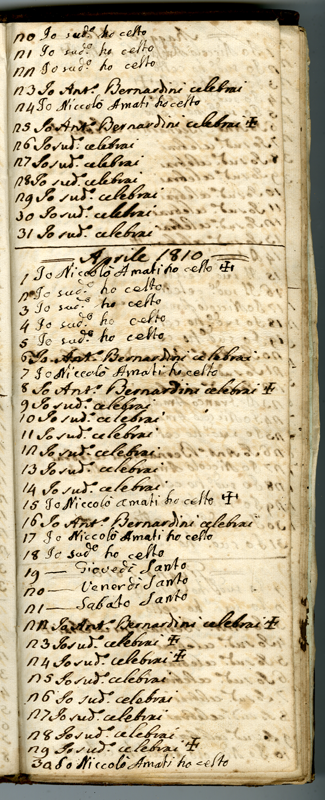 20 Io sud.º ho celto
21 Io sud.º ho celto
22 Io sud.º ho celto
23 Io Ant.º Bernardini celebrai
24 Io Niccolò Amati ho celto
25 Io Ant.º Bernardini celebrai ✠
26 Io sud.º celebrai
27 Io sud.º celebrai
28 Io sud.º celebrai
29 Io sud.º celebrai
30 Io sud.º celebrai
31 Io sud.º celebrai
Aprile 1810
1 Io Niccolò Amati ho celto ✠
2 Io sud.º ho celto
3 Io sud.º ho celto
4 Io sud.º ho celto
5 Io sud.º ho celto
6 Io Ant.º Bernardini celebrai
7 Io Niccolò Amati ho celto
8 Io Ant.º Bernardini celebrai ✠
9 Io sud.º celebrai
10 Io sud.º celebrai
11 Io sud.º celebrai
12 Io sud.º celebrai
13 Io sud.º celebrai
14 Io sud.º celebrai
15 Io Niccolò Amati ho celto ✠
16 Io Ant.º Bernardini celebrai
17 Io Niccolò Amati ho celto
18 Io sud.º ho celto
19 — Giovedì Santo
20 — Venerdì Santo
21 — Sabato Santo
22 Io Ant.º Bernardini celebrai ✠
23 Io sud.º celebrai ✠
24 Io sud.º celebrai ✠
25 Io sud.º celebrai
26 Io sud.º celebrai
27 Io sud.º celebrai
28 Io sud.º celebrai
29 Io sud.º celebrai ✠
30 Io Niccolò Amati ho celto